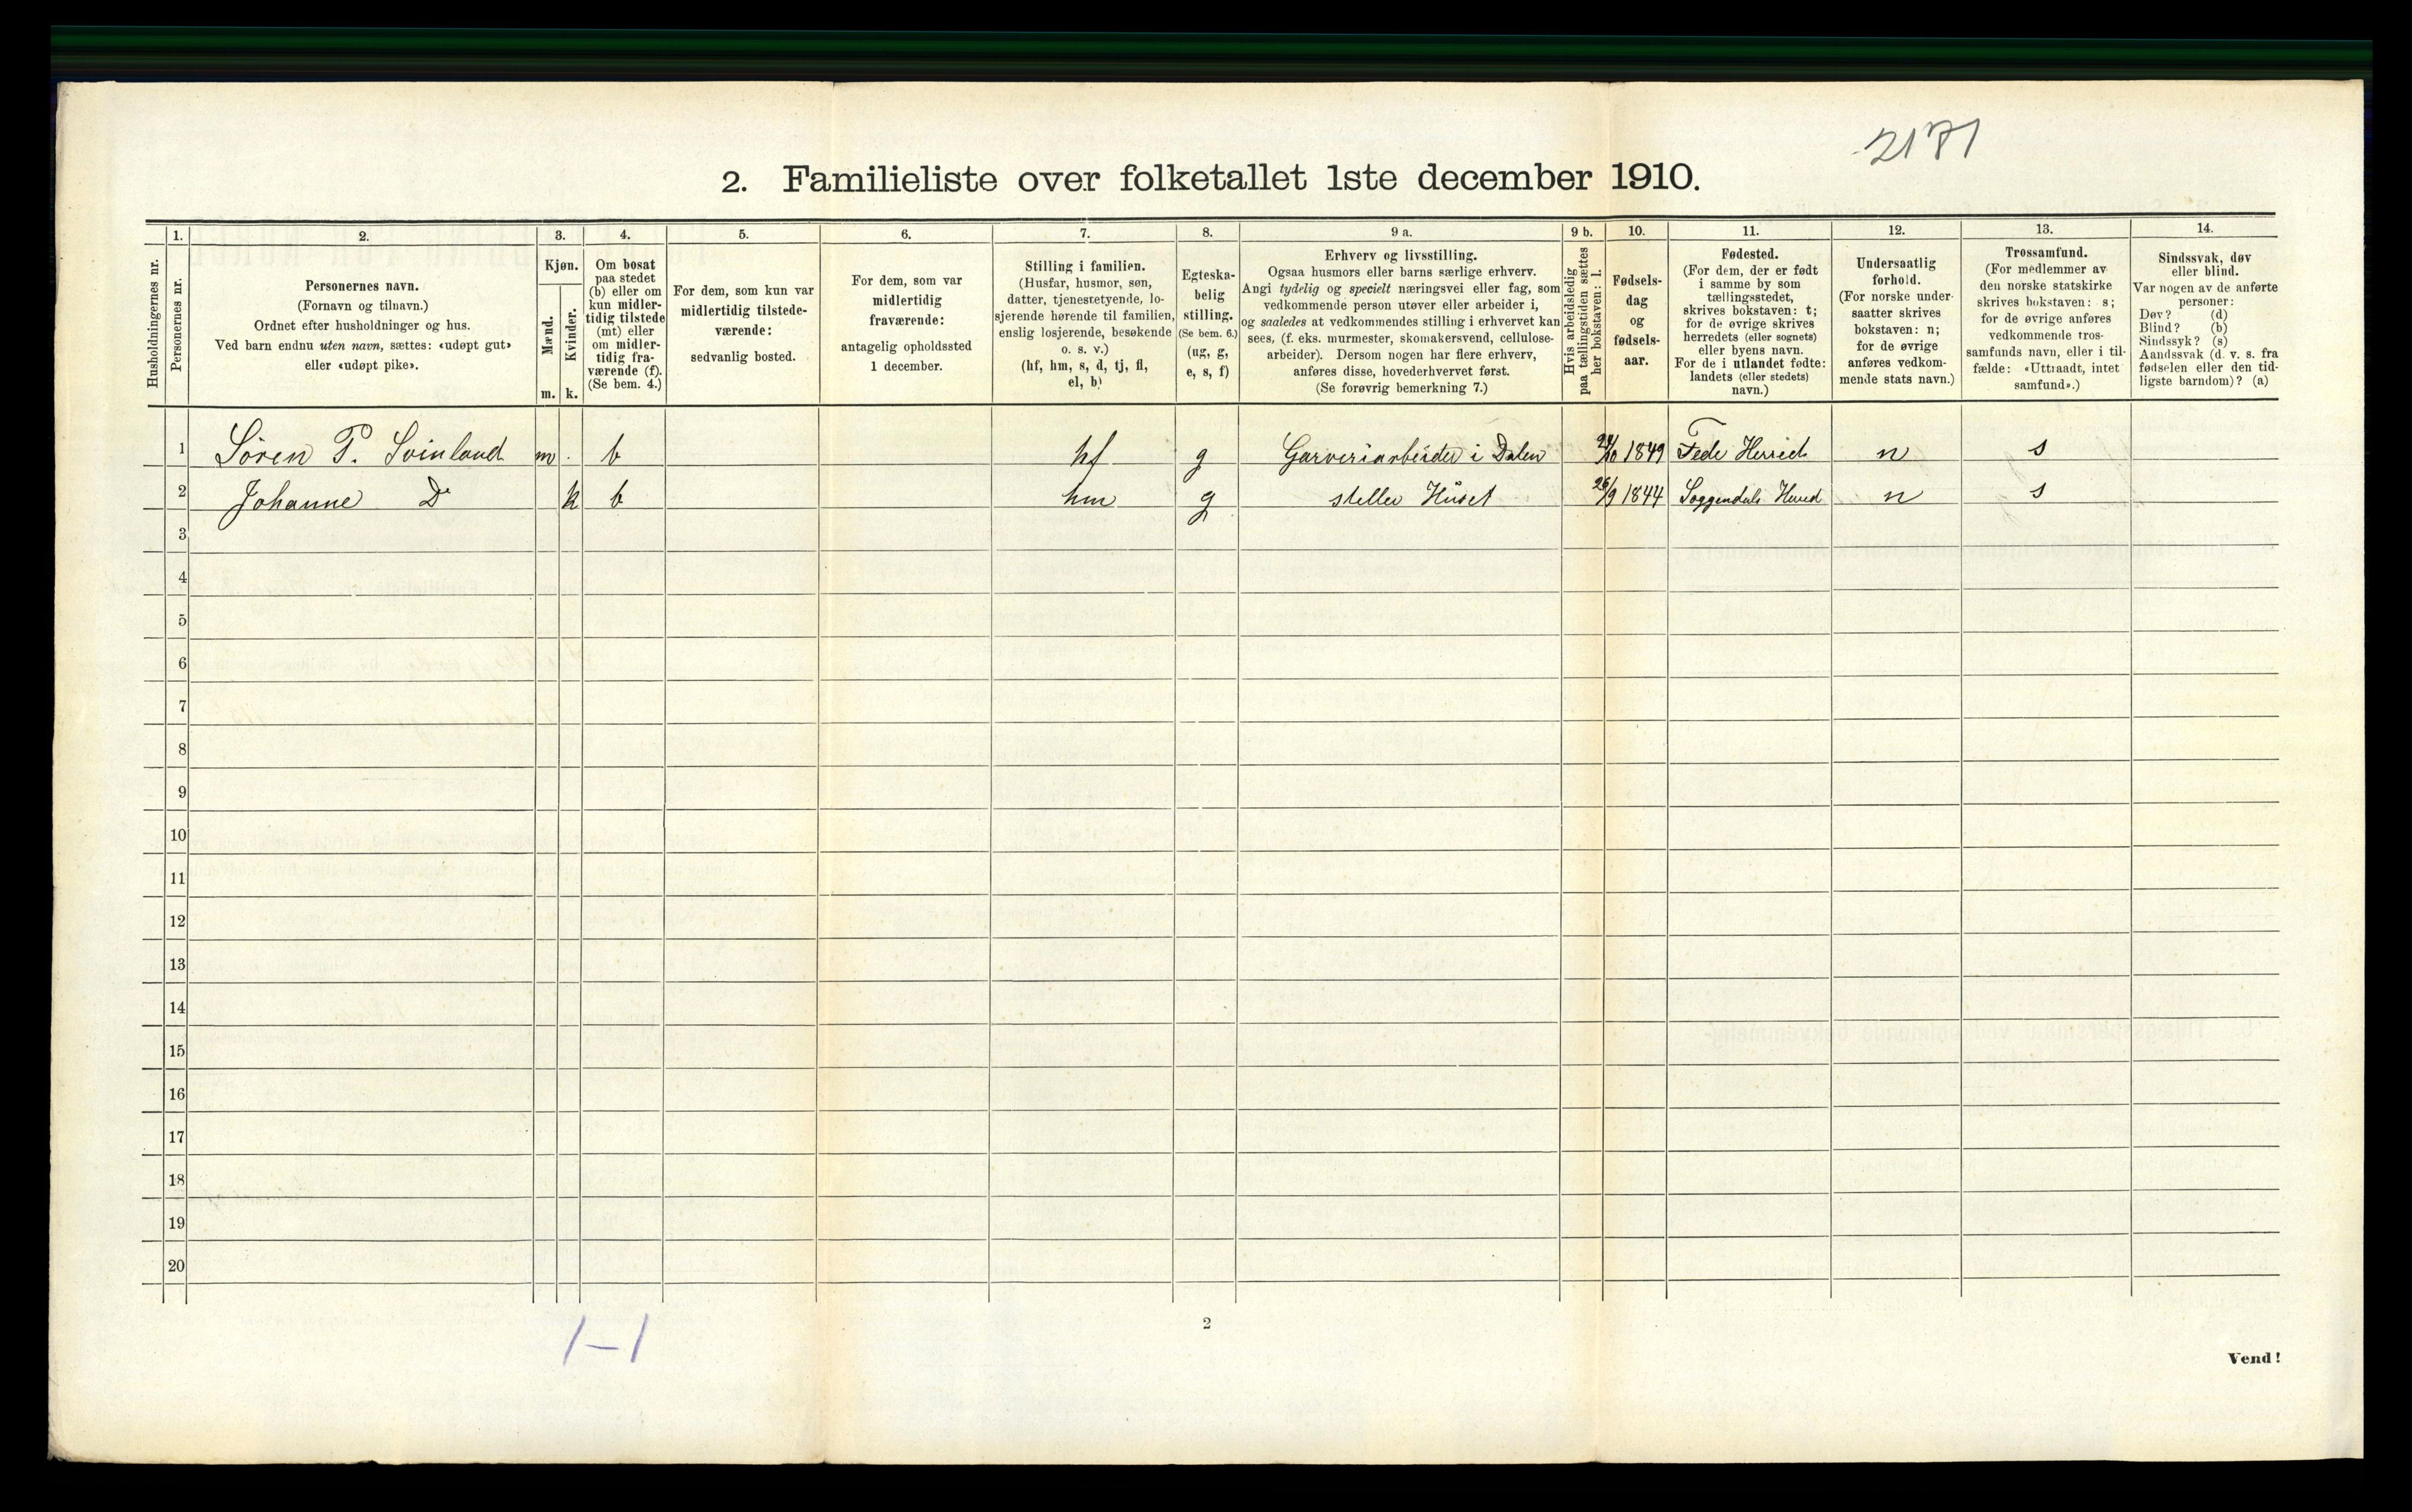 2171
2. Familieliste over folketallet 1ste december 1910.
Husholdningernes nr.
1.
Personernes nr.
2.
Personernes navn.
(Fornavn og tilnavn.)
Ordnet efter husholdninger og hus.
Ved barn endnu uten navn, sættes: «udøpt gut»
eller «udøpt pike».
3.
Kjøn.
Mænd.
Kvinder.
m.
k.
4.
Om bosat
paa stedet
(b) eller om
kun midler-
tidig tilstede
(mt) eller
om midler-
tidig fra-
værende (f).
(Se bem. 4.)
5.
For dem, som kun var
midlertidig tilstede-
værende:
sedvanlig bosted.
6.
For dem, som var
midlertidig
fraværende:
antagelig opholdssted
1 december.
7.
Stilling i familien.
(Husfar, husmor, søn,
datter, tjenestetyende, lo-
sjerende hørende til familien,
enslig losjerende, besøkende
o. s. v.)
(hf, hm, s, d, tj, fl,
el, b)
8.
Egteska-
belig
stilling.
(Se bem. 6.)
(ug, g,
e, s, f)
9 a.
Erhverv og livsstilling.
Ogsaa husmors eller barns særlige erhverv.
Angi tydelig og specielt næringsvei eller fag, som
vedkommende person utøver eller arbeider i,
og saaledes at vedkommendes stilling i erhvervet kan
sees, (f. eks. murmester, skomakersvend, cellulose-
arbeider). Dersom nogen har flere erhverv,
anføres disse, hovederhvervet først.
(Se forøvrig bemerkning 7.)
9 b.
Hvis arbeidsledig
paa tællingstiden sættes
her bokstaven: l.
10.
Fødsels-
dag
og
fødsels-
aar.
11.
Fødested.
(For dem, der er født
i samme by som
tællingsstedet,
skrives bokstaven: t;
for de øvrige skrives
herredets (eller sognets)
eller byens navn.
For de i utlandet fødte:
landets (eller stedets)
navn.)
12.
Undersaatlig
forhold.
(For norske under-
saatter skrives
bokstaven: n;
for de øvrige
anføres vedkom-
mende stats navn.)
13.
Trossamfund.
(For medlemmer av
den norske statskirke
skrives bokstaven: s;
for de øvrige anføres
vedkommende tros-
samfunds navn, eller i til-
fælde: «Uttraadt, intet
samfund».)
14.
Sindssvak, døv
eller blind.
Var nogen av de anførte
personer:
Døv? (d)
Blind? (b)
Sindssyk? (s)
Aandssvak (d. v. s. fra
fødselen eller den tid-
ligste barndom)? (a)
1 Sören P. Svinland m b hf g Garveriarbeider i Dalen /10 1849 Fede Herred n s
2 Johanne Do k b hm g steller Huset 26/9 1844 Soggendals Herred n s
3
4
5
6
7
8
9
10
11
12
13
14
15
16
17
18
19
20
1-1
2
Vend!